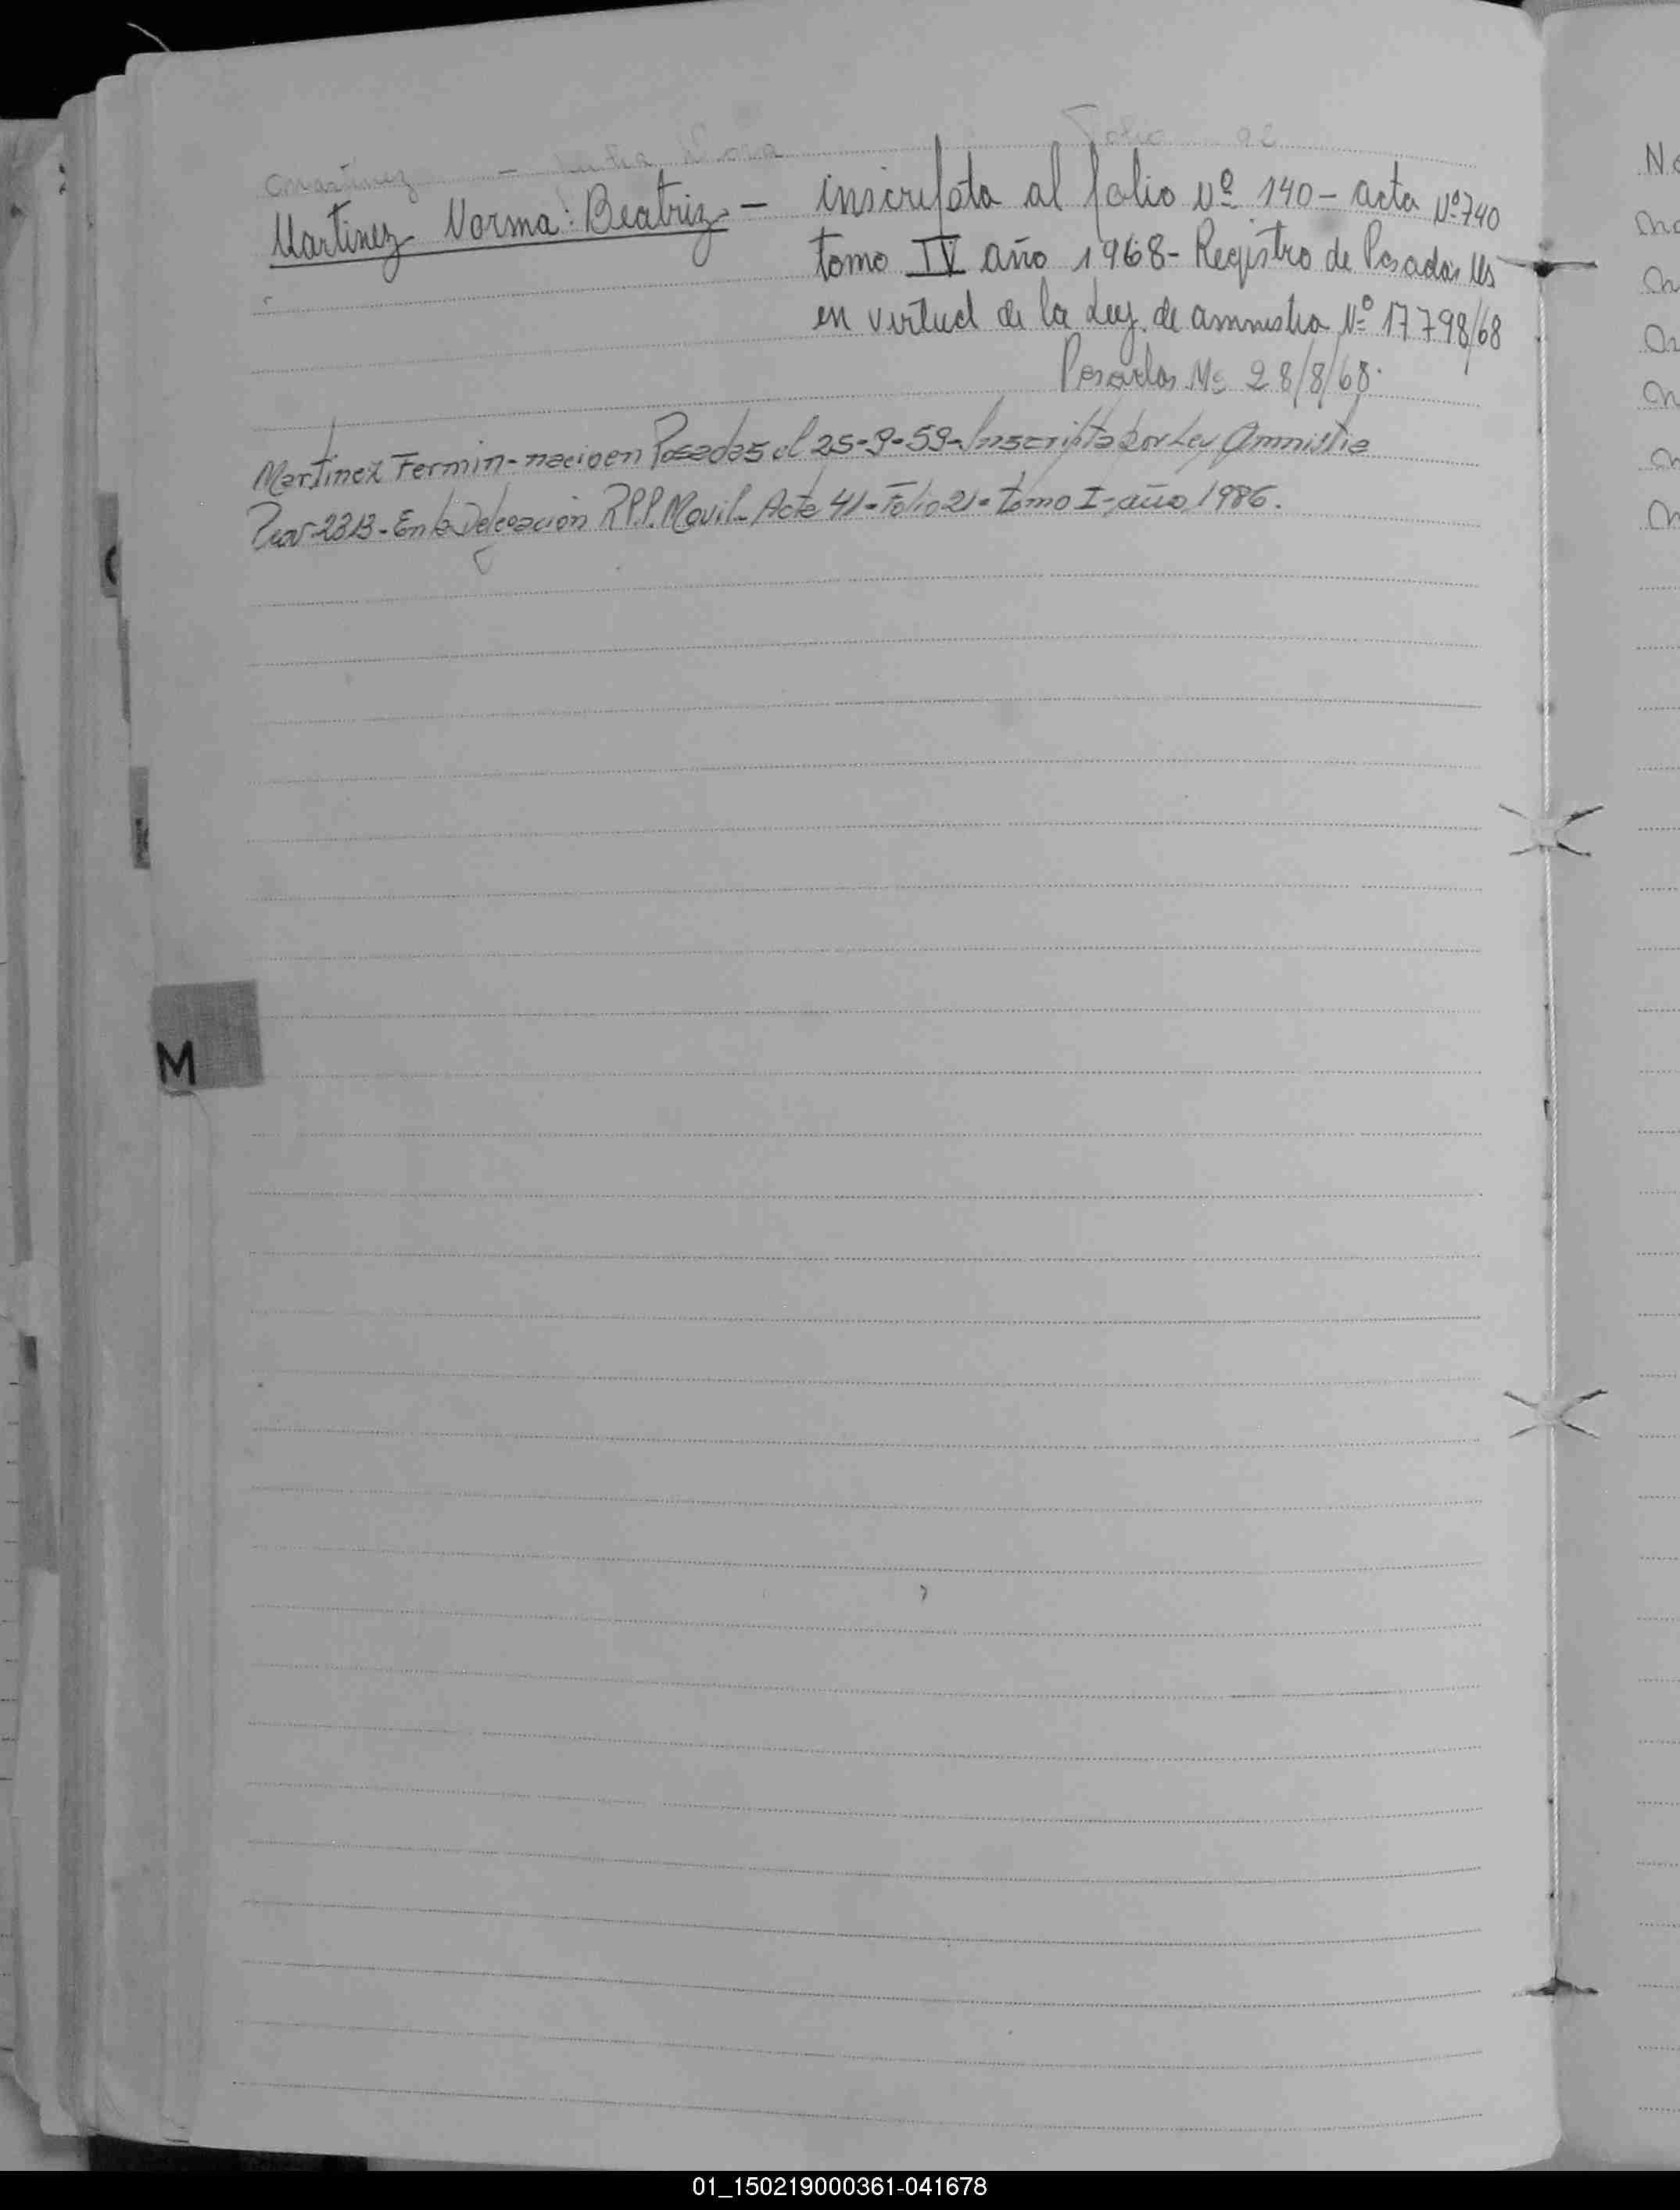 Martinez - Nora Folio 92
Martinez Norma Beatriz - inscripta al folio Nº 140 - acta Nº 740
tomo IV año 1968 - Registro de Posadas Ms
en virtud de la Ley de amnistia Nº 17798/68
Posadas Ms 28/8/68.
Martinez Fermin - nacio en Posadas el 25-9-59 - Inscripta por Ley Amnistia
Prov-2313 - En la Delegacion R.P.P. Movil - Acta 41 - Folio 21 - tomo I - año 1986.
M
01_150219000361-041678